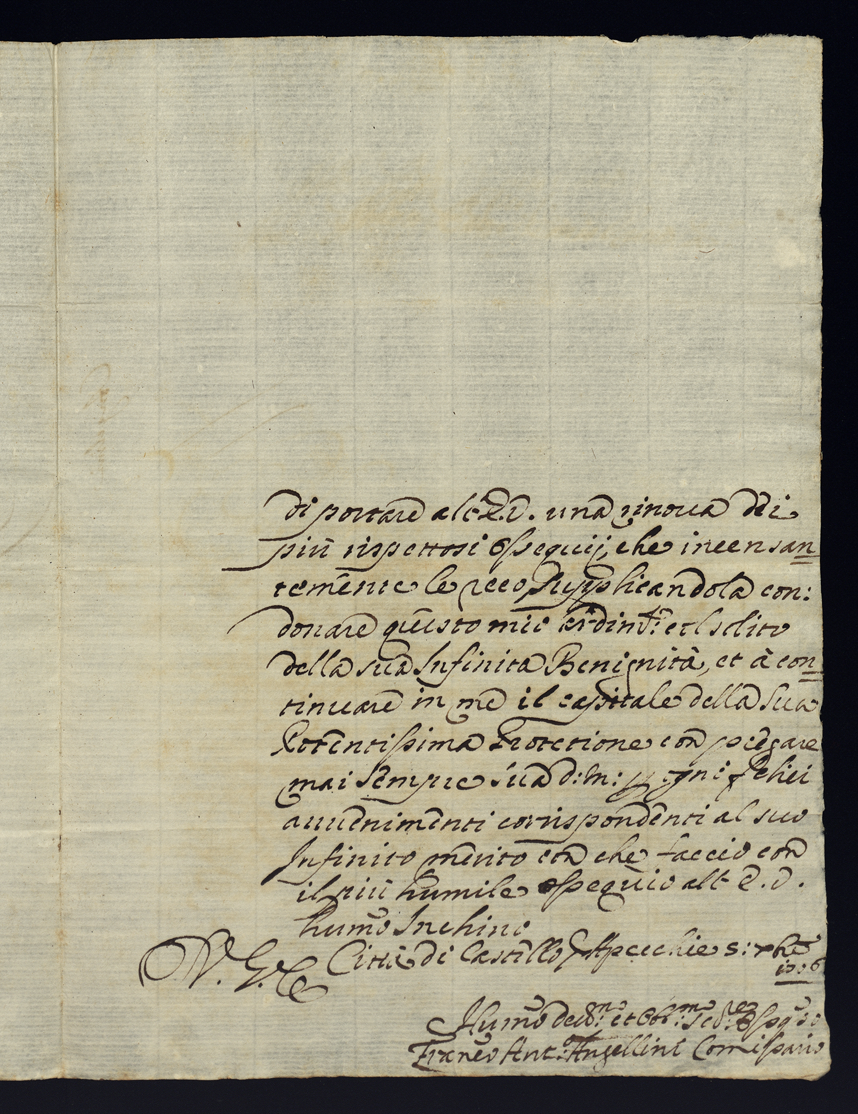 di portare all'E.V. una rinova dei
più rispettosi Ossequij, che incensan=
temente le reco, Supplicandola con:
donare questo mio ardim.to et solito
della sua Infinita Benignità, et à con=
tinuare in me il capitale della Sua
Potentissima Protetione con pregare
mai sempre Sua D: M: ogni felici
auuenimenti corrispondenti al suo
Infinito merito con che faccio con
il più humile Ossequio all'E.V.
humo Inchino
V. E. Città di Castillo Apecchie 5: xbre
Humo deu.mo et Obl.mo Ser.re Ossequo
Franco Ant.o Angellini Comissario